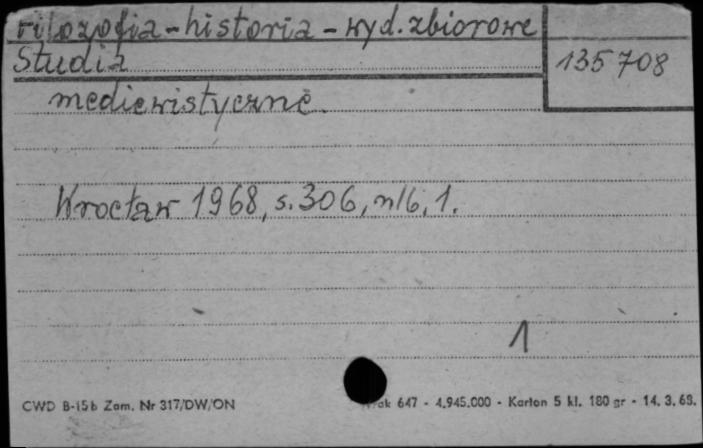 filozofia - historia - wyd. zbiorowe
Studia
135 708
mediewistyczne.
Wrocław 1968, s. 306, nlb, 1.
1
CWD B-15b Zam. Nr 317/DW/ON
647 - 4.945.000 - Karton 5 kl. 180 gr - 14. 3. 68.